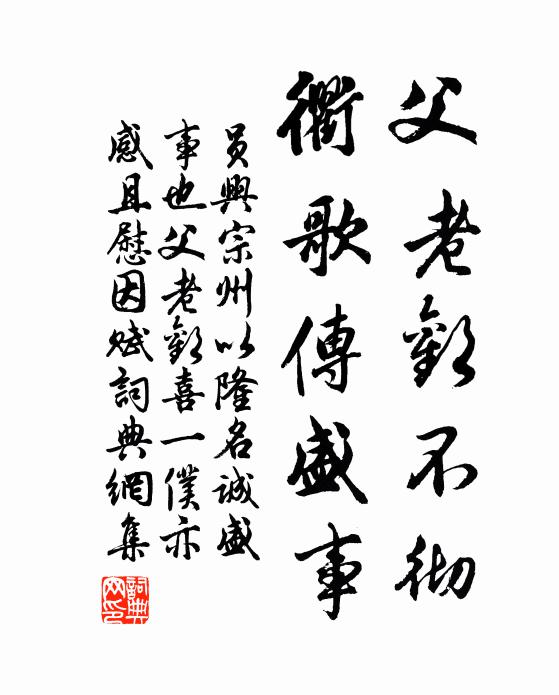 父老歡不徹
衢歌傳盛事
員興宗州以隆名誠盛
事也父老歡喜一僕亦
感且慰因賦詞典網集
詞典網印